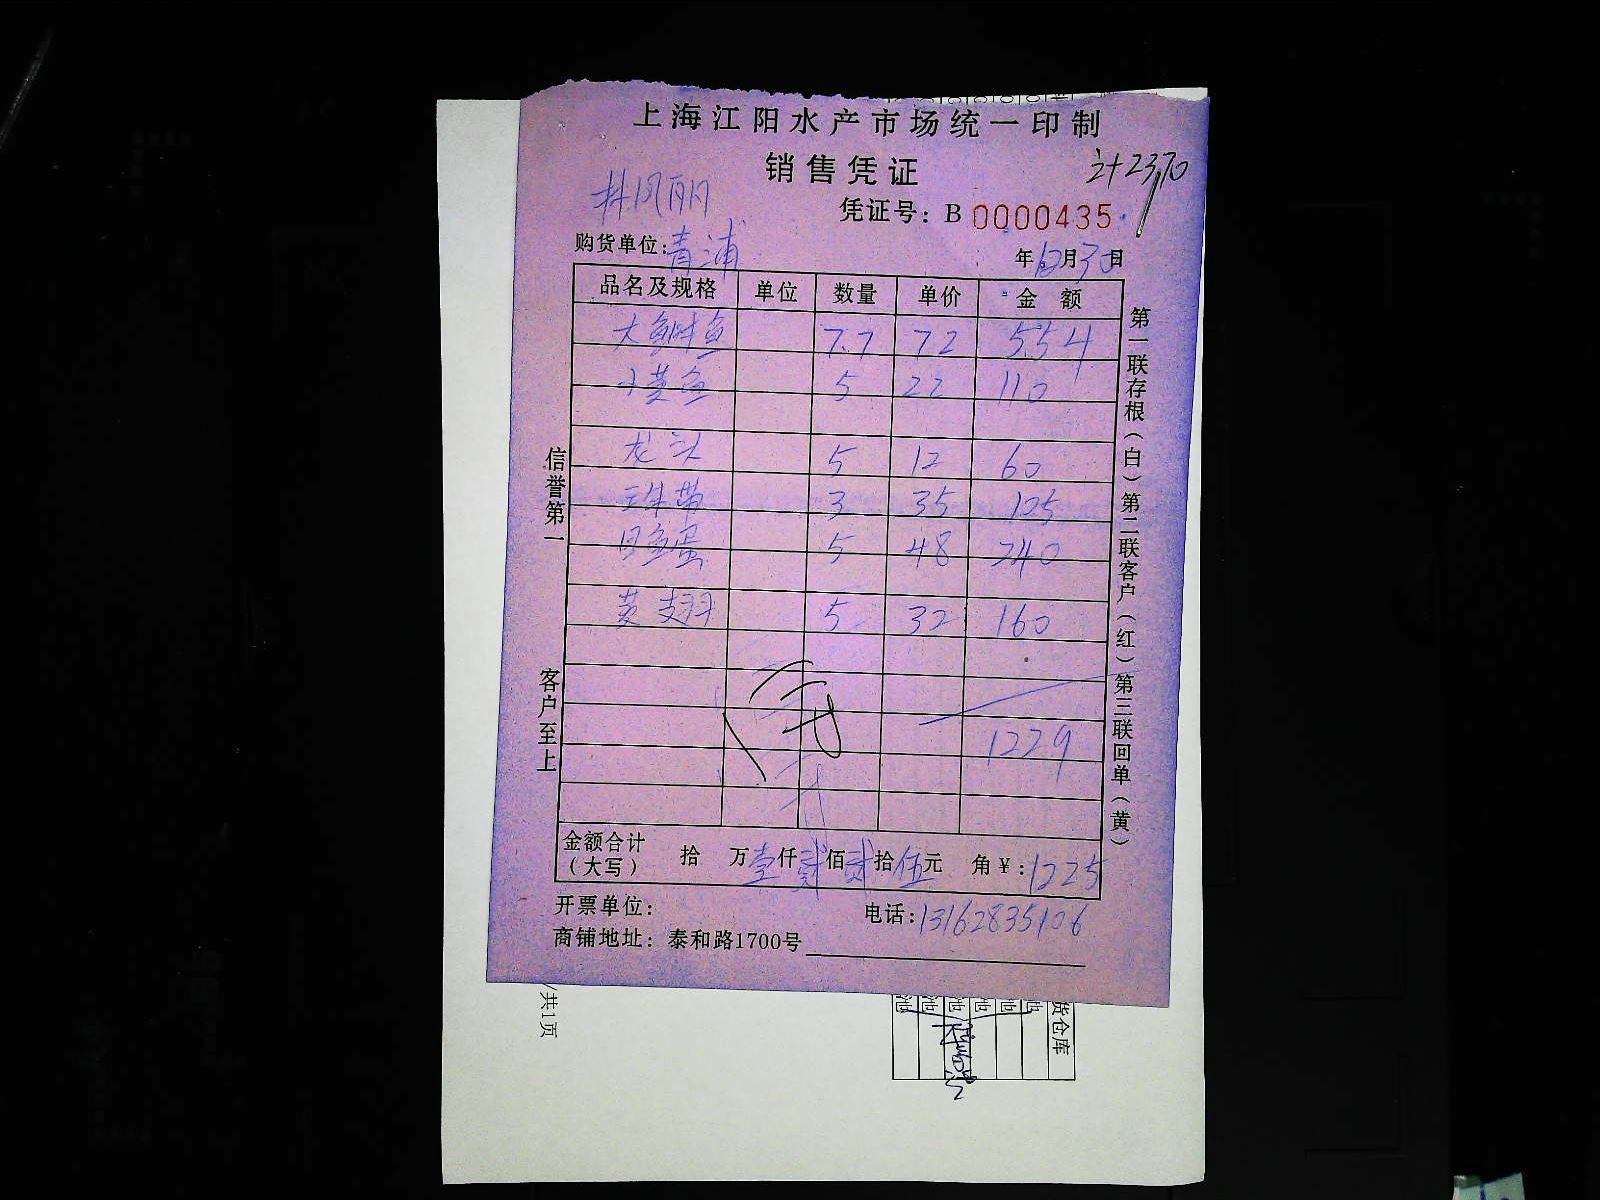 上海江阳水产市场统一印制
销售凭证
计2370
凭证号：B 0000435
购货单位：青浦
年12月30日
品名及规格 单位 数量 单价 金额
7.7 72 554
小黄鱼 5 22 110
龙头 5 12 60
3 35 105
目鱼蛋 5 48 240
5 32 160
1229
金额合计（大写） 拾 万壹仟贰佰贰拾伍元 角￥：1225
开票单位： 电话：13162835106
商铺地址：泰和路1700号
信誉第一
客户至上
第一联存根（白）第二联客户（红）第三联回单（黄）
/共1页
货仓库